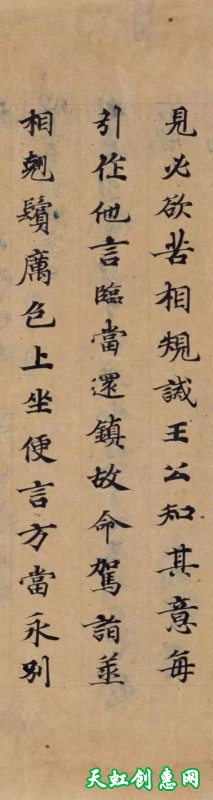 見必欲苦相規誡王公知其意每
引作他言臨當還鎮故命駕詣丞
相翹鬢厲色上坐便言方當永別
天虹创惠网